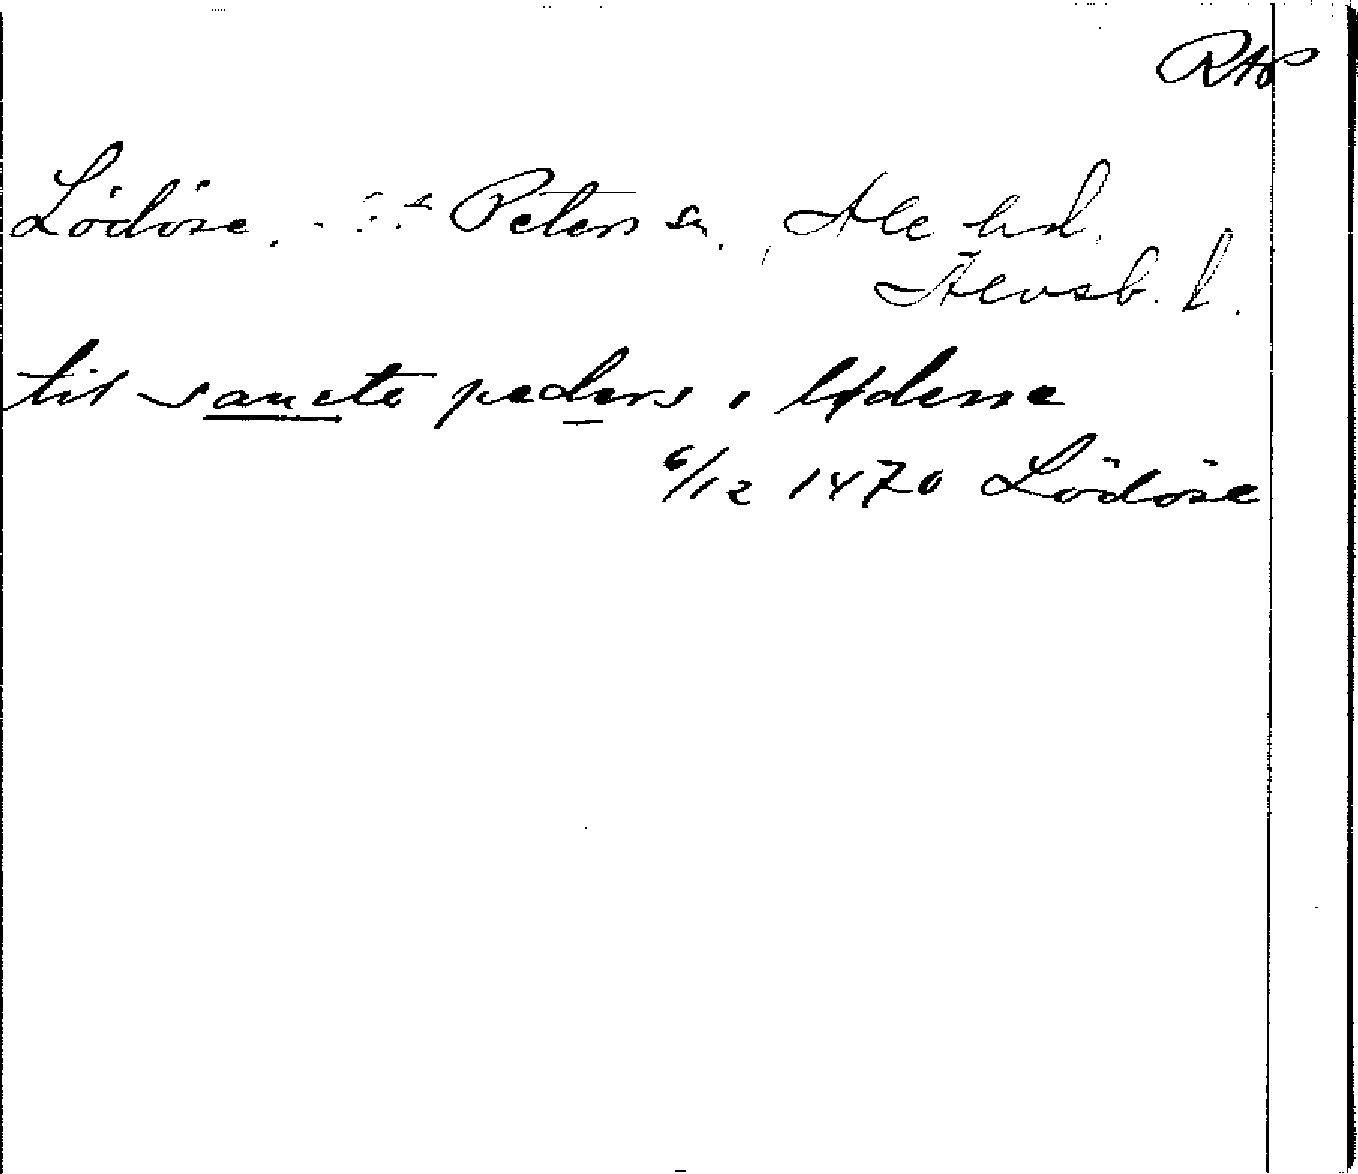 RAP
Lödöse, S:t Peters sn, Ale hd.
Älvsb. l.
til sancte peders i lødesse
6/12 1470 Lödöse